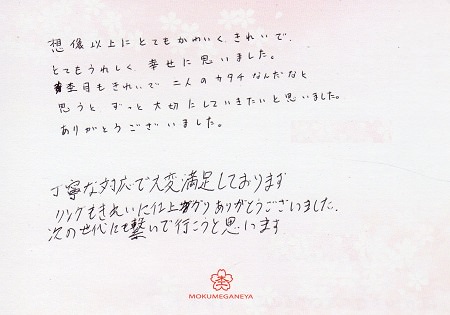 想像以上にとてもかわいく、きれいで、
とてもうれしく、幸せに思いました。
杢目もきれいで 二人のカタチなんだなと
思うと、ずっと大切にしていきたいと思いました。
ありがとうございました。
丁寧な対応で大変満足しております
リングもきれいに仕上がりありがとうございました。
次の世代にも繋いで行こうと思います
MOKUMEGANEYA